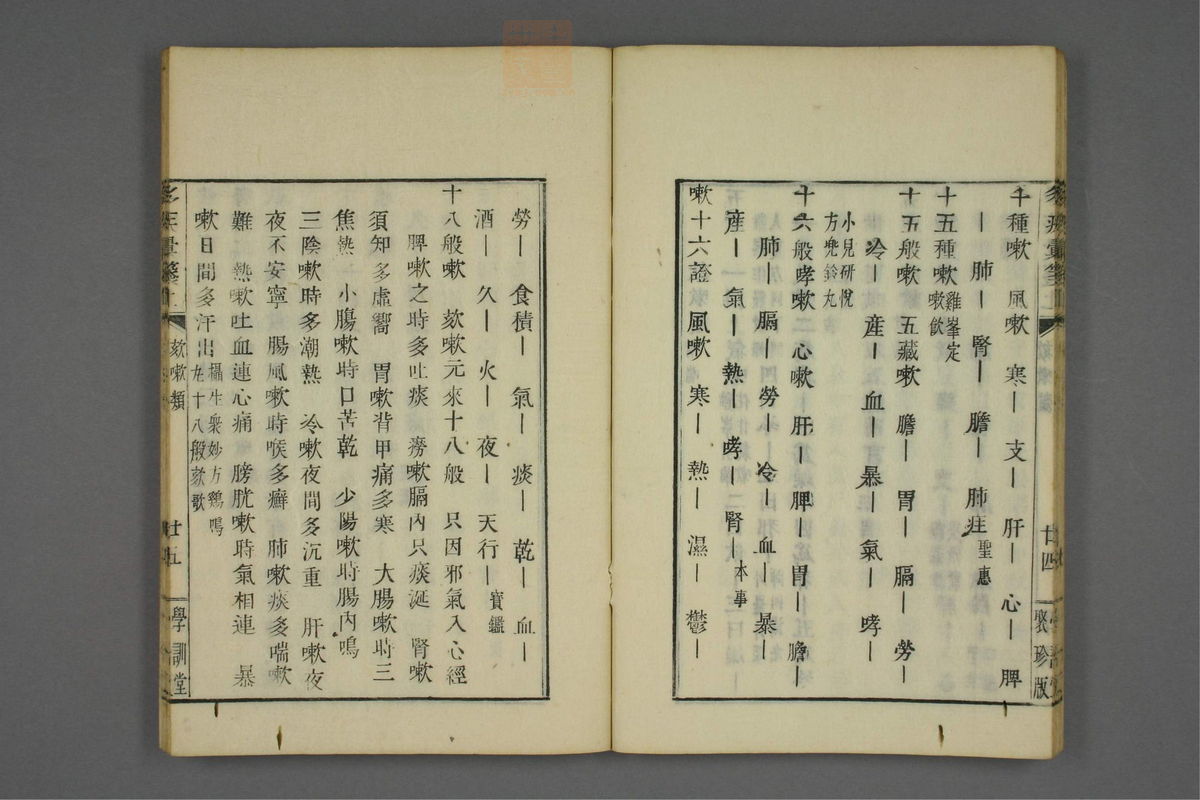 十種嗽　風嗽　寒―　支―　肝―　心―　脾
―　肺―　腎―　膽―　肺疰聖惠
十五種嗽雞峯定嗽飲
十五般嗽　五藏嗽　膽―　胃―　膈―　勞―
冷―　産―　血―　暴―　氣―　哮―
小兒研悅方兜鈴丸
十六般哮嗽　心嗽　肝―　脾―　胃―　膽―
肺―　膈―　勞―　冷―　血―　暴―
産―　氣―　熱―　哮―　腎―本事
嗽十六證　風嗽　寒―　熱―　濕―　鬱―
廿四
聚珍版
勞―　食積―　氣―　痰―　乾―　血―
酒―　久―　火―　夜―　天行―寶鑑
十八般嗽　欬嗽元來十八般　只因邪氣入心經
脾嗽之時多吐痰　勞嗽膈內只痰涎　腎嗽
須知多虛嚮　胃嗽背甲痛多寒　大腸嗽時三
焦熱　小腸嗽時口苦乾　少陽嗽時腸內鳴
三陰嗽時多潮熱　冷嗽夜間多沉重　肝嗽夜
夜不安寧　腸風嗽時喉多癬　肺嗽痰多喘嗽
難　熱嗽吐血連心痛　膀胱嗽時氣相連　暴
嗽日間多汗出攝生衆妙方鷄鳴丸十八般欬歌
欬嗽類
廿五
學訓堂